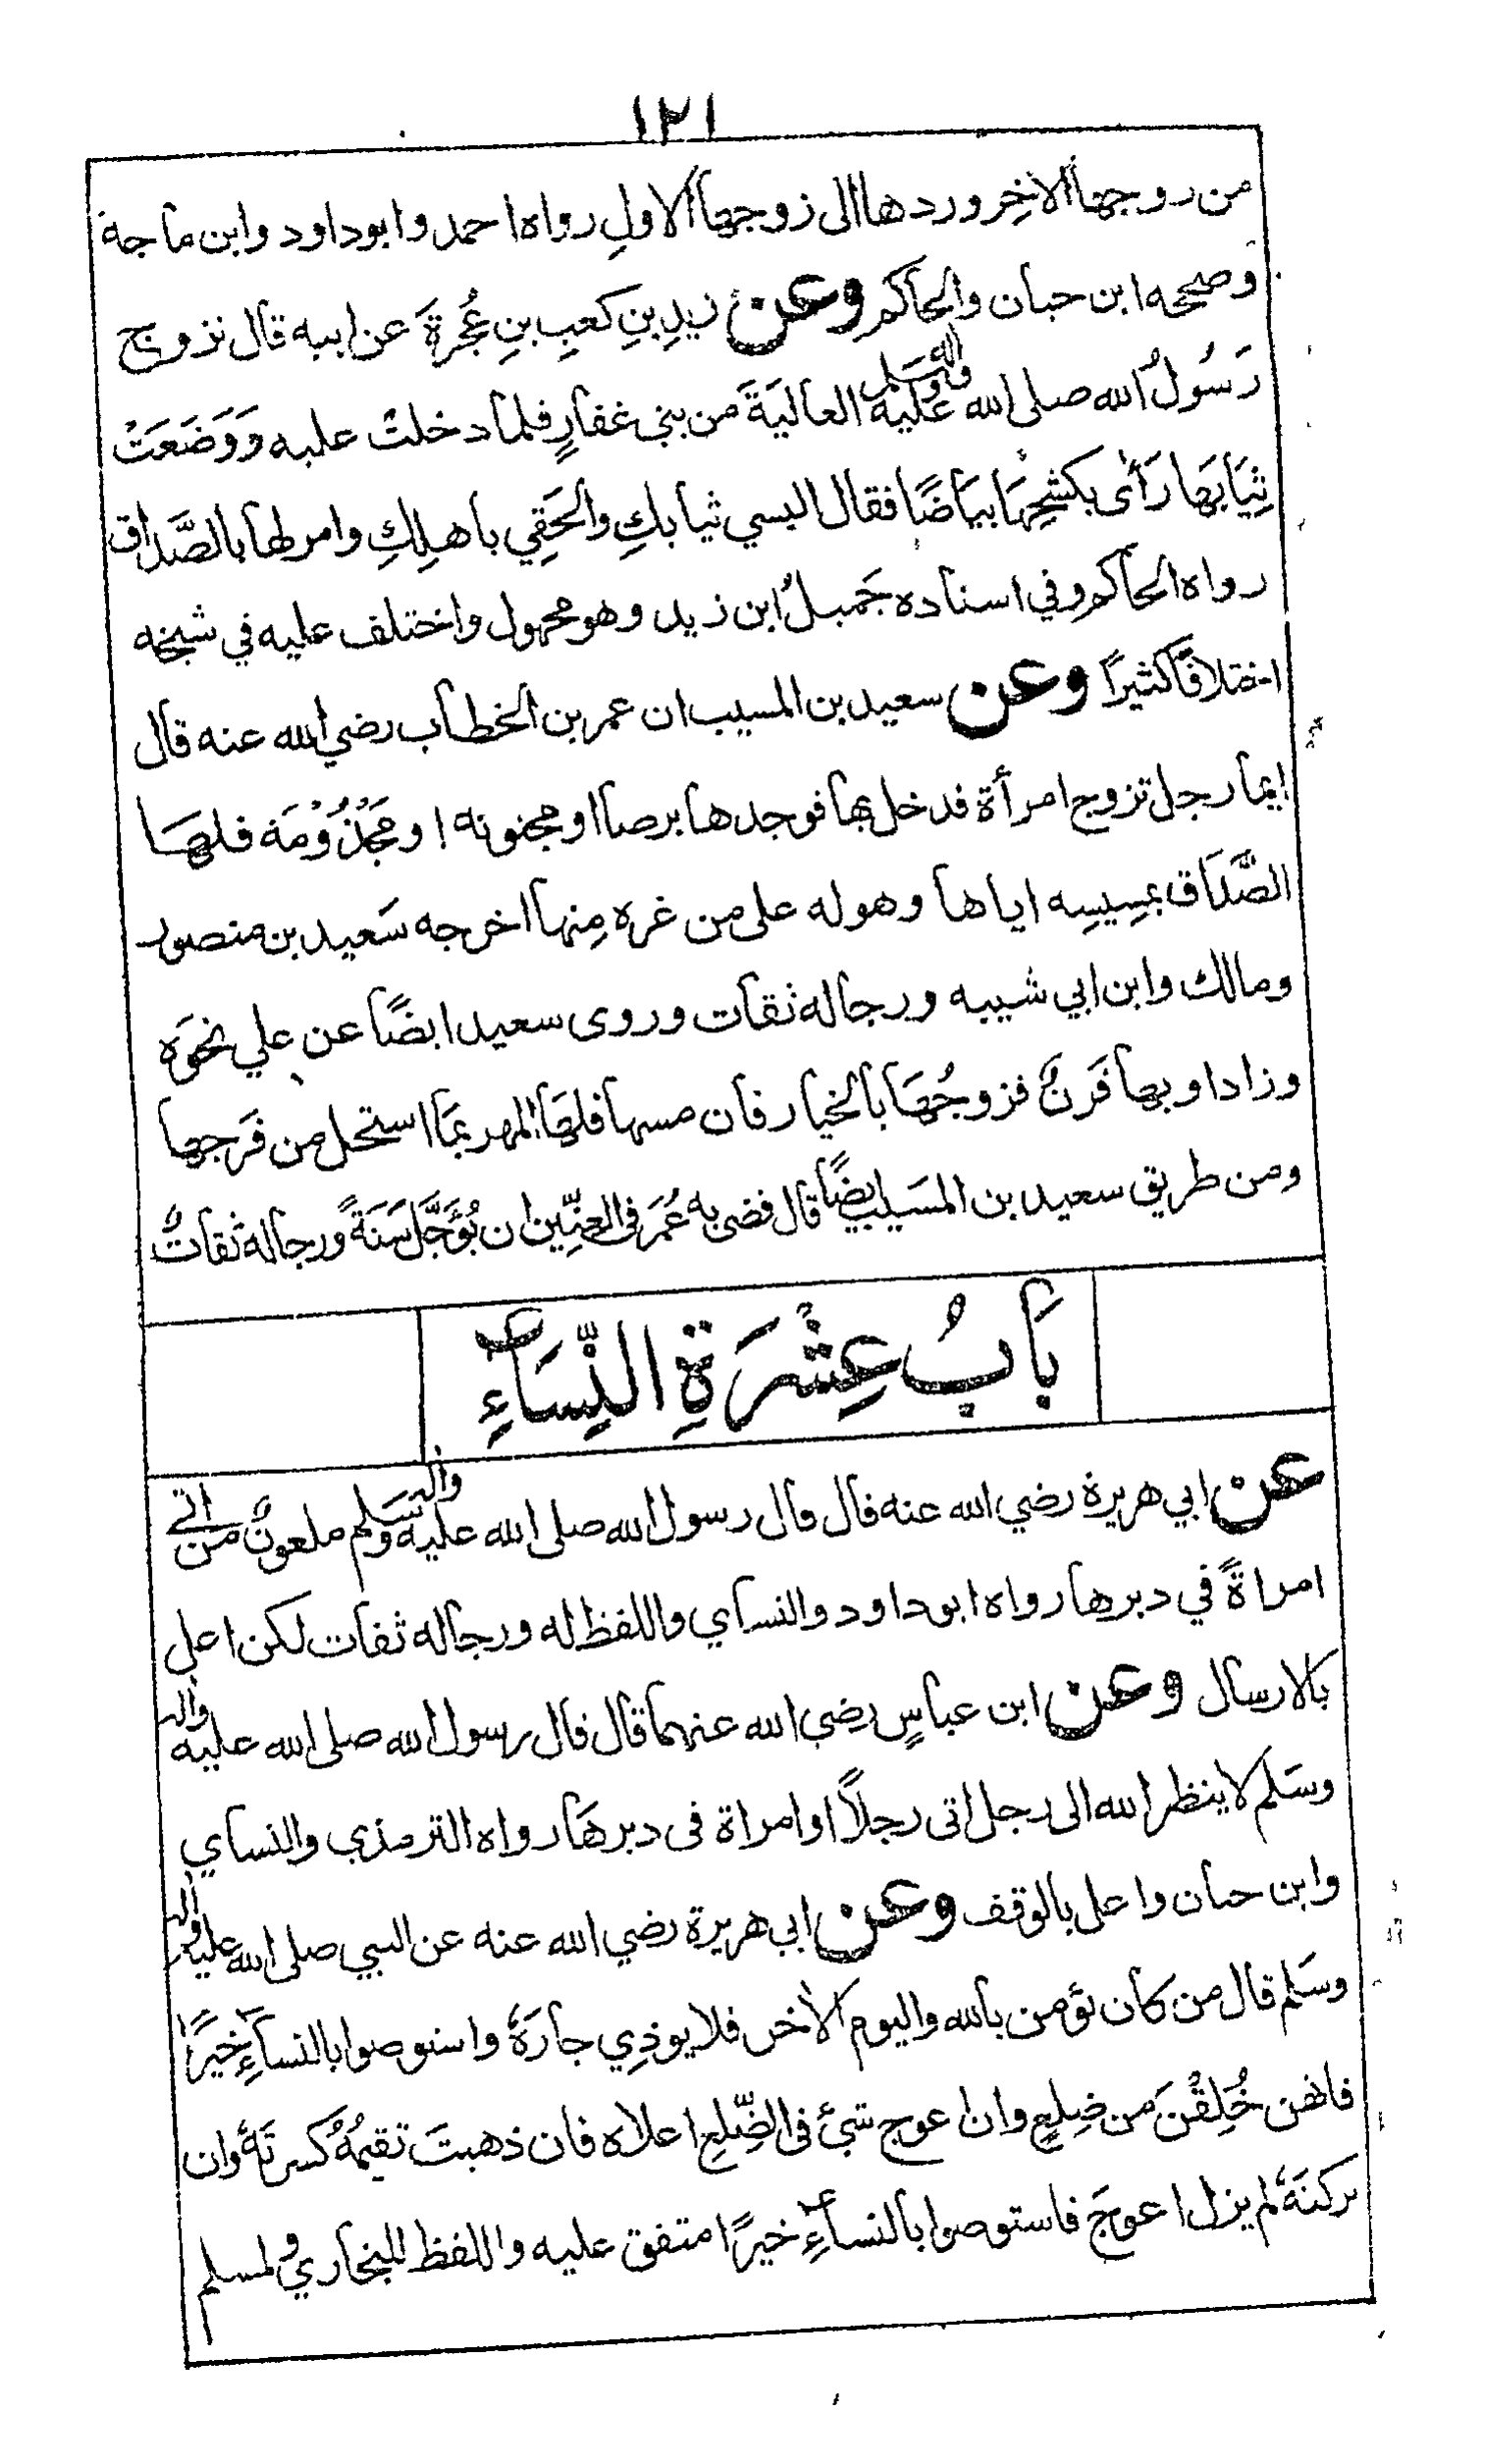 ١٢١
من روجها الاخِر وردها الى زوجها الاولِ رواه احمد وابوداود وابن ماجة
وصححه ابن حبان والحاكم وعن زيدِ بنِ كعبِ بنِ عُجرةَ عن ابيه قال تزوج
رَسُولُ الله صلى الله عليه واله وسلم العاليَةَ من بني غفارٍ فلما دخلت عليه وَوَضَعَتْ
ثِيَابَهَا رَأى بكشحِهَا بيَاضًا فقال البسي ثيابكِ والحَقِي باهلِكِ وامر لها بالصَّداق
رواه الحاكم وفي اسناده جَميلُ ابن زيد وهو مجهول واختلف عليه في شيخه
اختلافًا كثيرًا وعن سعيد بن المسيب ان عمر بن الخطاب رضي الله عنه قال
ايما رجل تزوج امرأة فدخل بها فوجدها برصا او مجنونه او مَجْذُوْمَة فلهَا
الصَّدَاق بمسِيسِه اياها وهو له على من غره مِنها اخرجه سَعيد بن منصور
ومالك وابن ابي شيبه ورجاله ثقات وروى سعيد ايضًا عن علي نحوَه
وزاد او بها قَرنٌ فزوجُهَا بالخيار فان مسها فلهَا المهر بمَا استحل من فَرجها
ومن طريق سعيد بن المسَيب ايضًا قال قضى به عُمَر في العِنِّين ان يُؤَجَّل سَنَةً ورجاله ثقاتٌ
بَابُ عِشْرَةِ النِّسَآءِ
عن ابي هريرة رضي الله عنه قال قال رسول الله صلى الله عليه واله وسَلم ملعونٌ من اتى
امراةً في دبرها رواه ابوداود والنساي واللفظ له ورجاله ثقات لكن اعل
بالارسال وعن ابن عباسٍ رضي الله عنهما قال قال رسول الله صلى الله عليه واله
وسَلم لا ينظر الله الى رجل اتى رجلاً او امراة في دبرهَا رواه الترمذي والنساي
وابن حبان واعل بالوقف وعن ابي هريرة رضي الله عنه عن النبي صلى الله عليه واله
وسَلم قال من كان يؤمن بالله واليوم الاخر فلا يوذِي جارَهُ واستوصوا بالنسآءِ خيرًا
فانهن خُلِقْنَ من ضِلعٍ وان اعوج شئ في الضِّلع اعلاه فان ذهبتَ تقيمُهُ كسرتَهُ وان
تركتَهُ لم يزل اعوجَ فاستوصوا بالنسآءِ خيرًا متفق عليه واللفظ للبخاري ولمسلم